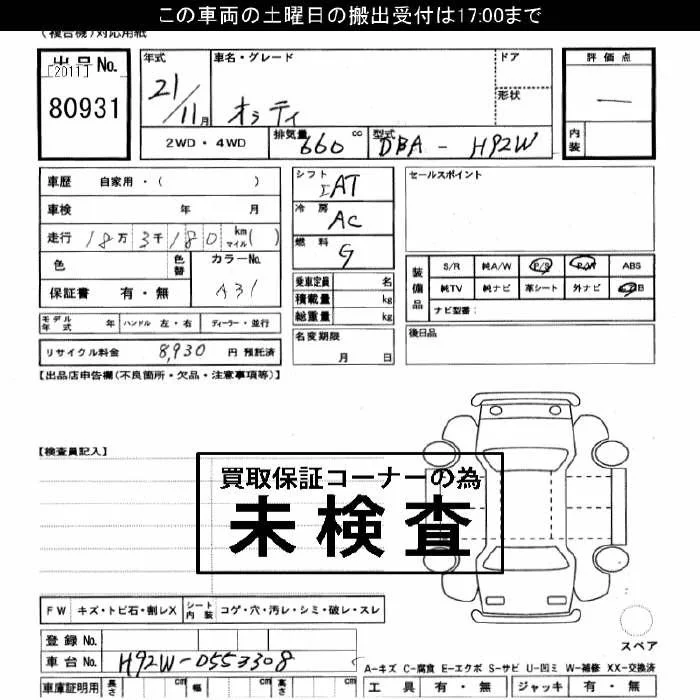 この車両の土曜日の搬出受付は17:00まで
(複合機)対応用紙
出品No.
[2011]
80931
年式
21/11月
車名・グレード
オッティ
ドア
形状
評価点
―
内装
2WD・4WD
排気量 660 cc
型式 DBA - H92W
車歴 自家用・( )
車検 年 月
走行 18万3千180 km マイル( )
色 色替 カラーNo.
保証書 有・無 A31
シフト
IAT
冷房
AC
燃料
G
セールスポイント
装備品
S/R 純A/W P/S P/W ABS
純TV 純ナビ 革シート 外ナビ
ナビ型番:
乗車定員 名
積載量 kg
総重量 kg
モデル年式 年 ハンドル 左・右 ディーラー・並行
名変期限
月 日
後日品
リサイクル料金 8,930 円 預託済
【出品店申告欄(不良箇所・欠品・注意事項等)】
【検査員記入】
買取保証コーナーの為
未検査
FW キズ・トビ石・割レX シート内装 コゲ・穴・汚レ・シミ・破レ・スレ
スペア
登録 No.
車台 No. H92W-0553308
A-キズ C-腐食 E-エクボ S-サビ U-凹ミ W-補修 XX-交換済
車庫証明用 長さ cm 幅 cm 高さ cm
工具 有・無 ジャッキ 有・無